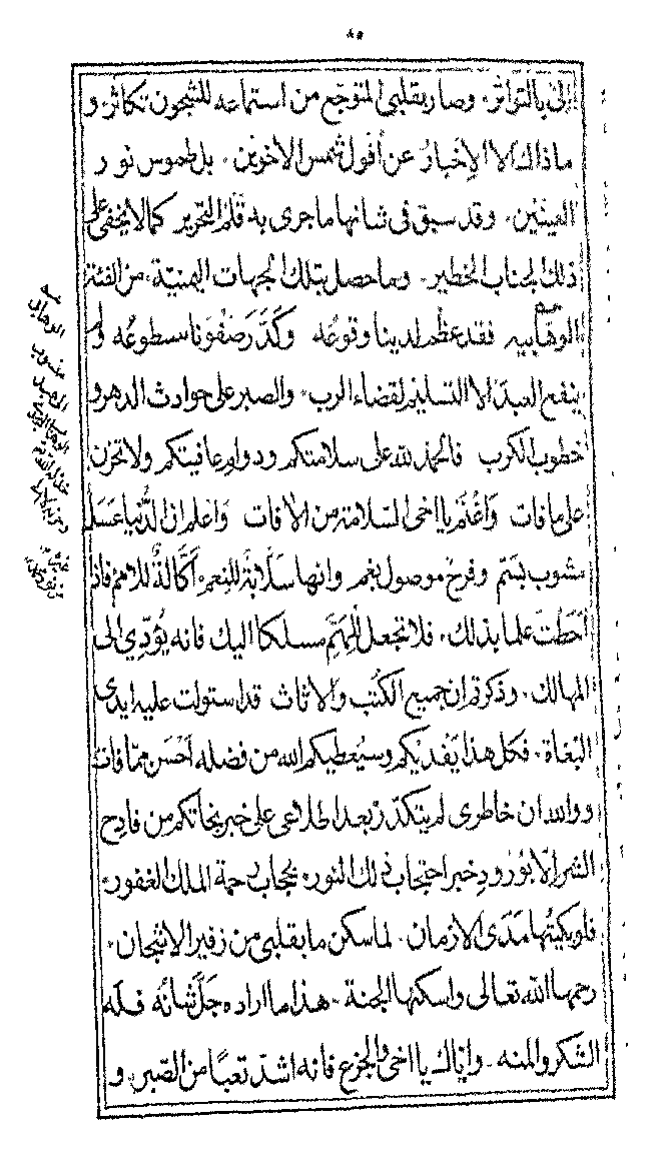 ٨٥
اليّ بالتواتر، وصار بقلبي المتوجّع من استماعه للشجون تكاثر، و
ماذاك الا الاخبارُ عن أفول شمس الاخوين، بل طموس نور
العينين، وقد سبق في شانها ما جرى به قلم التحرير كما لا يخفى على
ذلك الجناب الخطير، وما حصل بتلك الجهات اليمنيّة، من الفئة
الوهّابيه فقد عظم لدينا وقوعُه وكدّر صفوَنا سطوعُه ولم
ينفع العبدَ الا التسليم لقضاء الرب، والصبر على حوادث الدهر و
خطوب الكرب فالحمد لله على سلامتكم ودوام عافيتكم ولا تحزن
على مافات وَاغْنَم يا اخي السّلامة من الافات وَاعلم ان الدُّنيا عَسَل
مشوب بسَمّ وفرحٌ موصول بغم وانها سَلّابةٌ للنِعم، أكّالةٌ للامم فاذا
أحَطتَ علما بذلك، فلا تجعل للِهَمّ مسلكا اليك فانه يؤدّي الى
المهالك، وذكرتم ان جميع الكتب والاثاث قد استولت عليه ايدى
البُغاة، فكل هذا يَفديكم وسيُعطيكم الله من فضله أحسَن ممّا فات
ووالله ان خاطرى لم يتكدّر بعد اطلاعى على خبر نجاتكم من فادِح
الشر الّا بوُرودِ خبر احتجاب ذلك النور، بحجاب رحمة الملك الغفور،
فلو بكيتُها مَدَى الازمان، لما سكن ما بقلبى من زفير الاشجان،
رحمها الله تعالى واسكنها الجنة، هذا ما اراده جَلَّ شانُه فله
الشكر والمنه، وإيّاك يا اخي والجزع فانه اشدّ تعبًا من الصّبر، و
الوهابي
منسوب